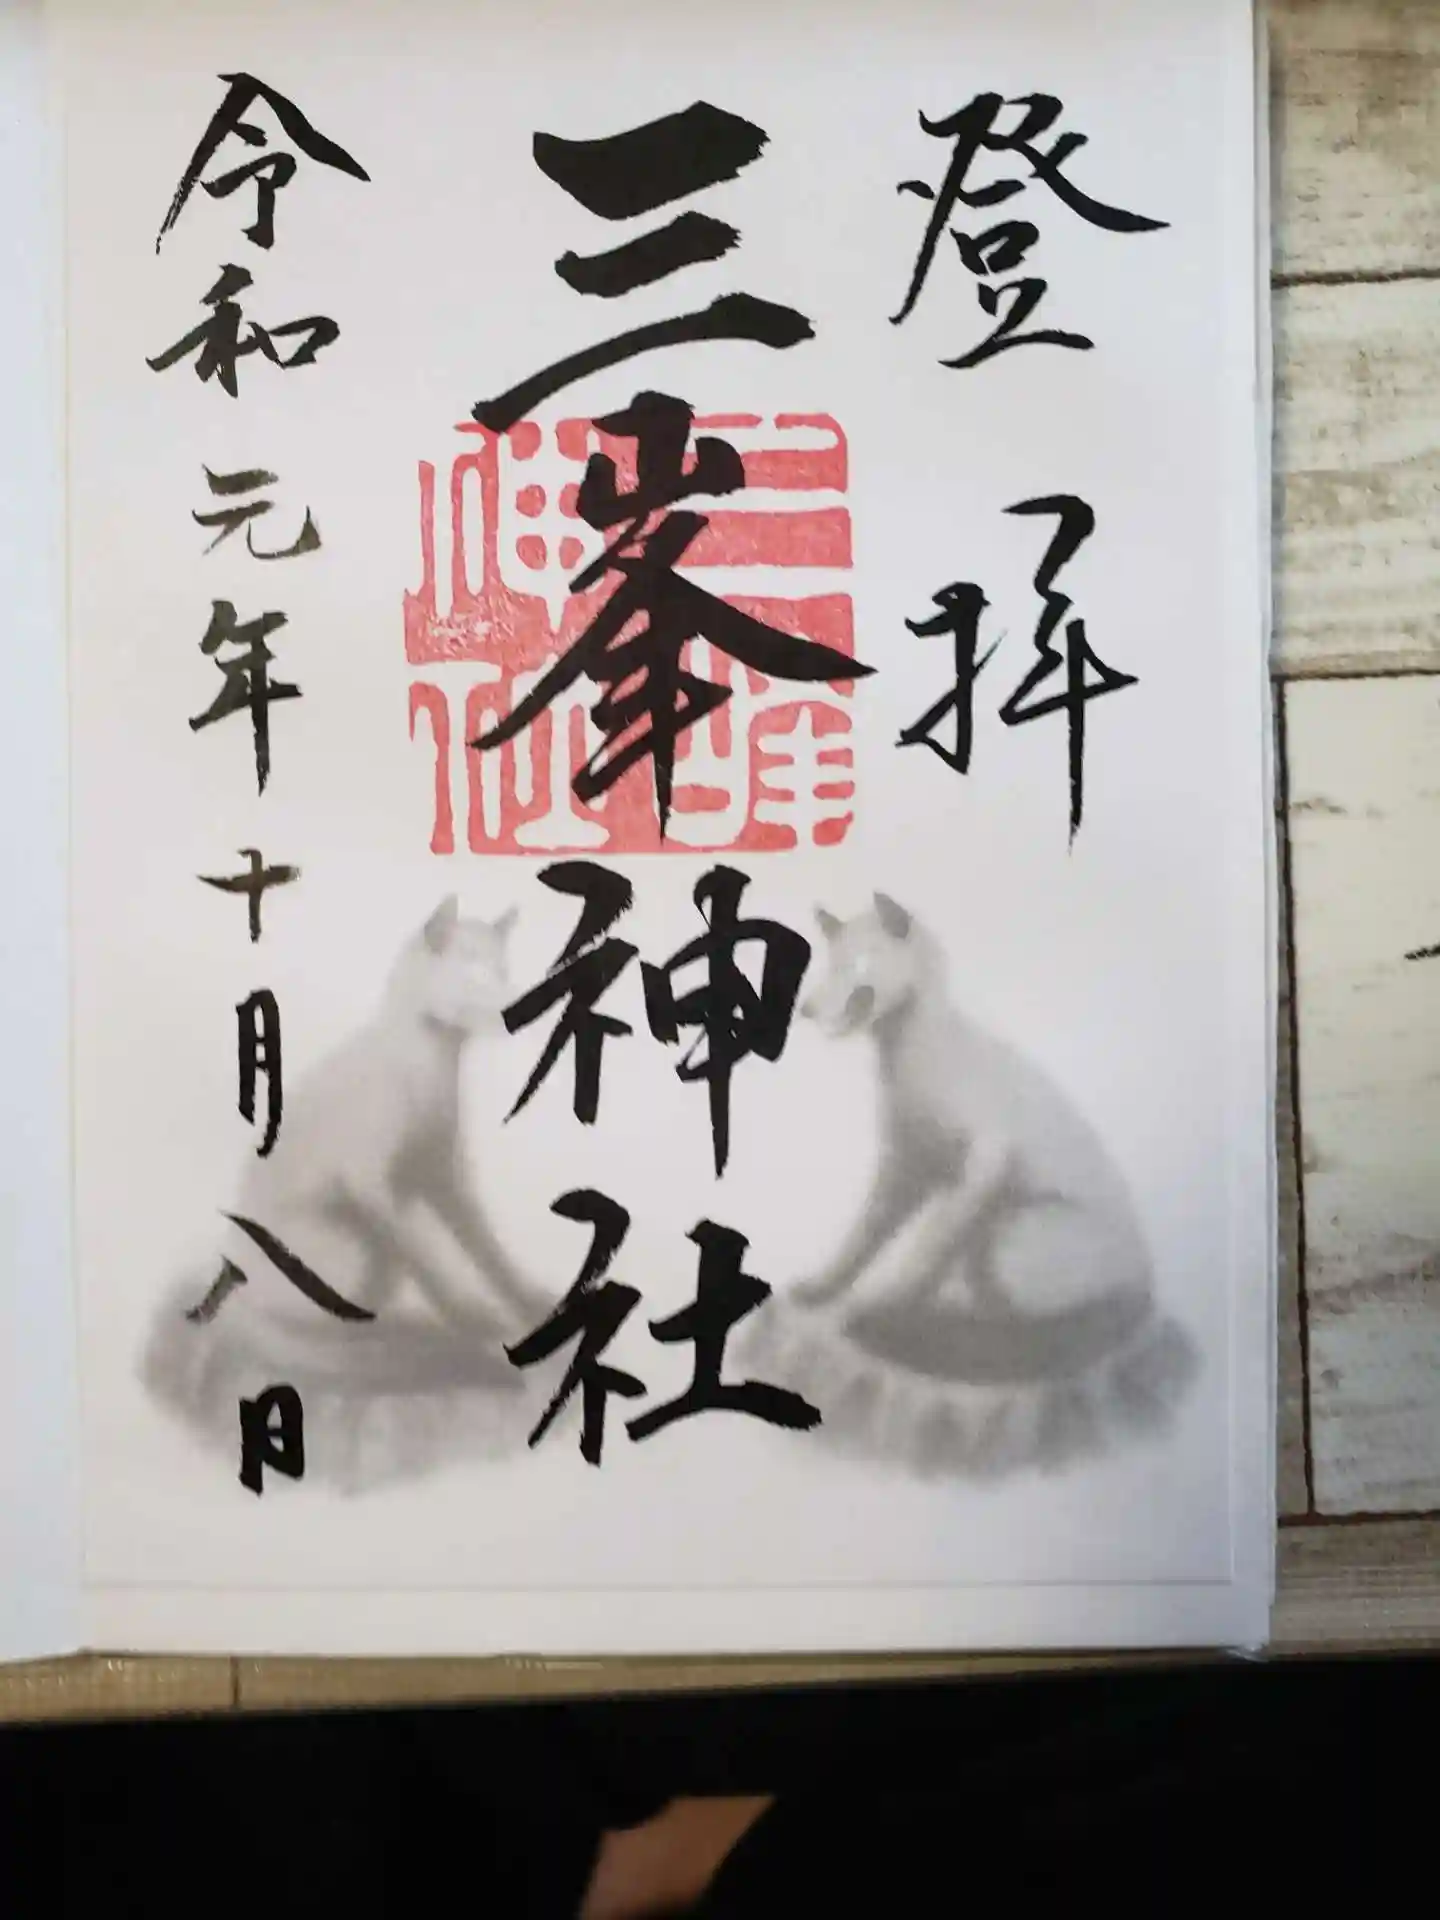 登拝
三峯神社
三峯神社
令和元年十月八日